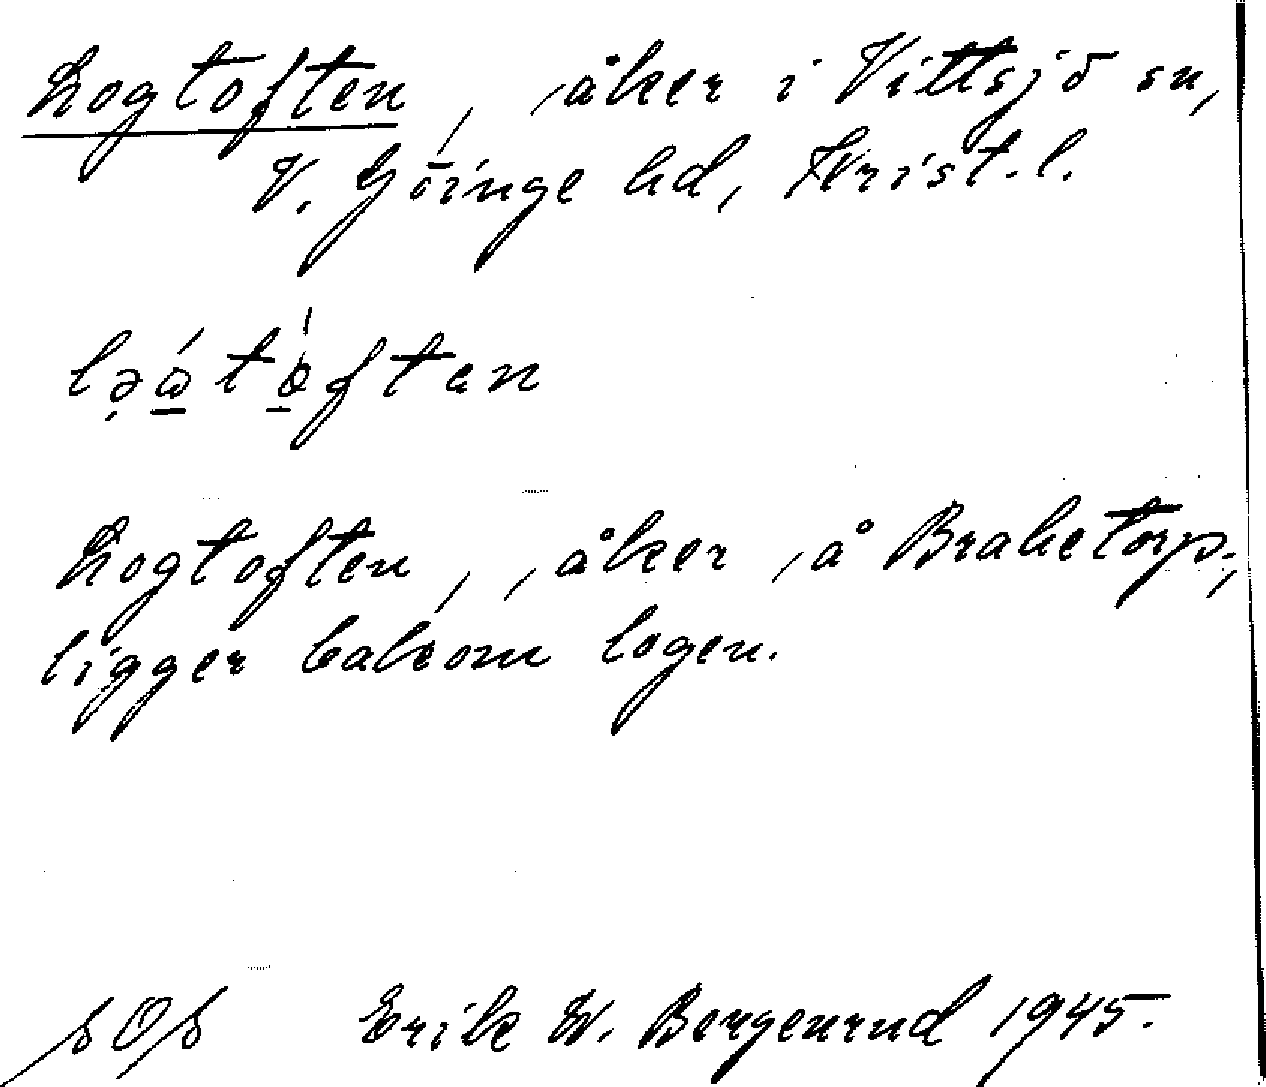 Logtoften, åker i Vittsjö sn,
V. Göinge hd, Krist. l.
Logtoften, åker å Brahetorp,
ligger bakom logen.
Erik W. Bergenrud 1945.